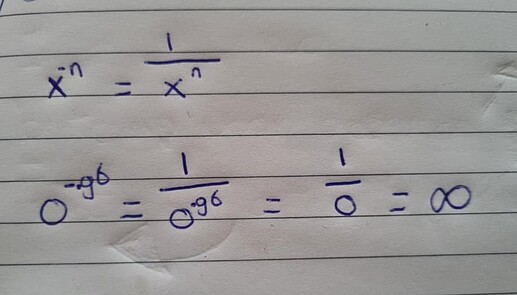 x^-n = 1/x^n
0^-96 = 1/0^96 = 1/0 = ∞